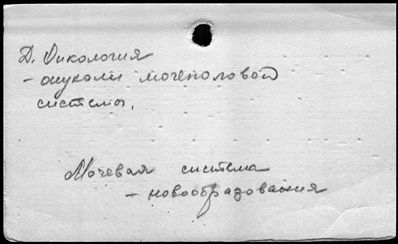 Д. Онкология
- опухоли мочеполовой
системы.
Мочевая система
- новообразования